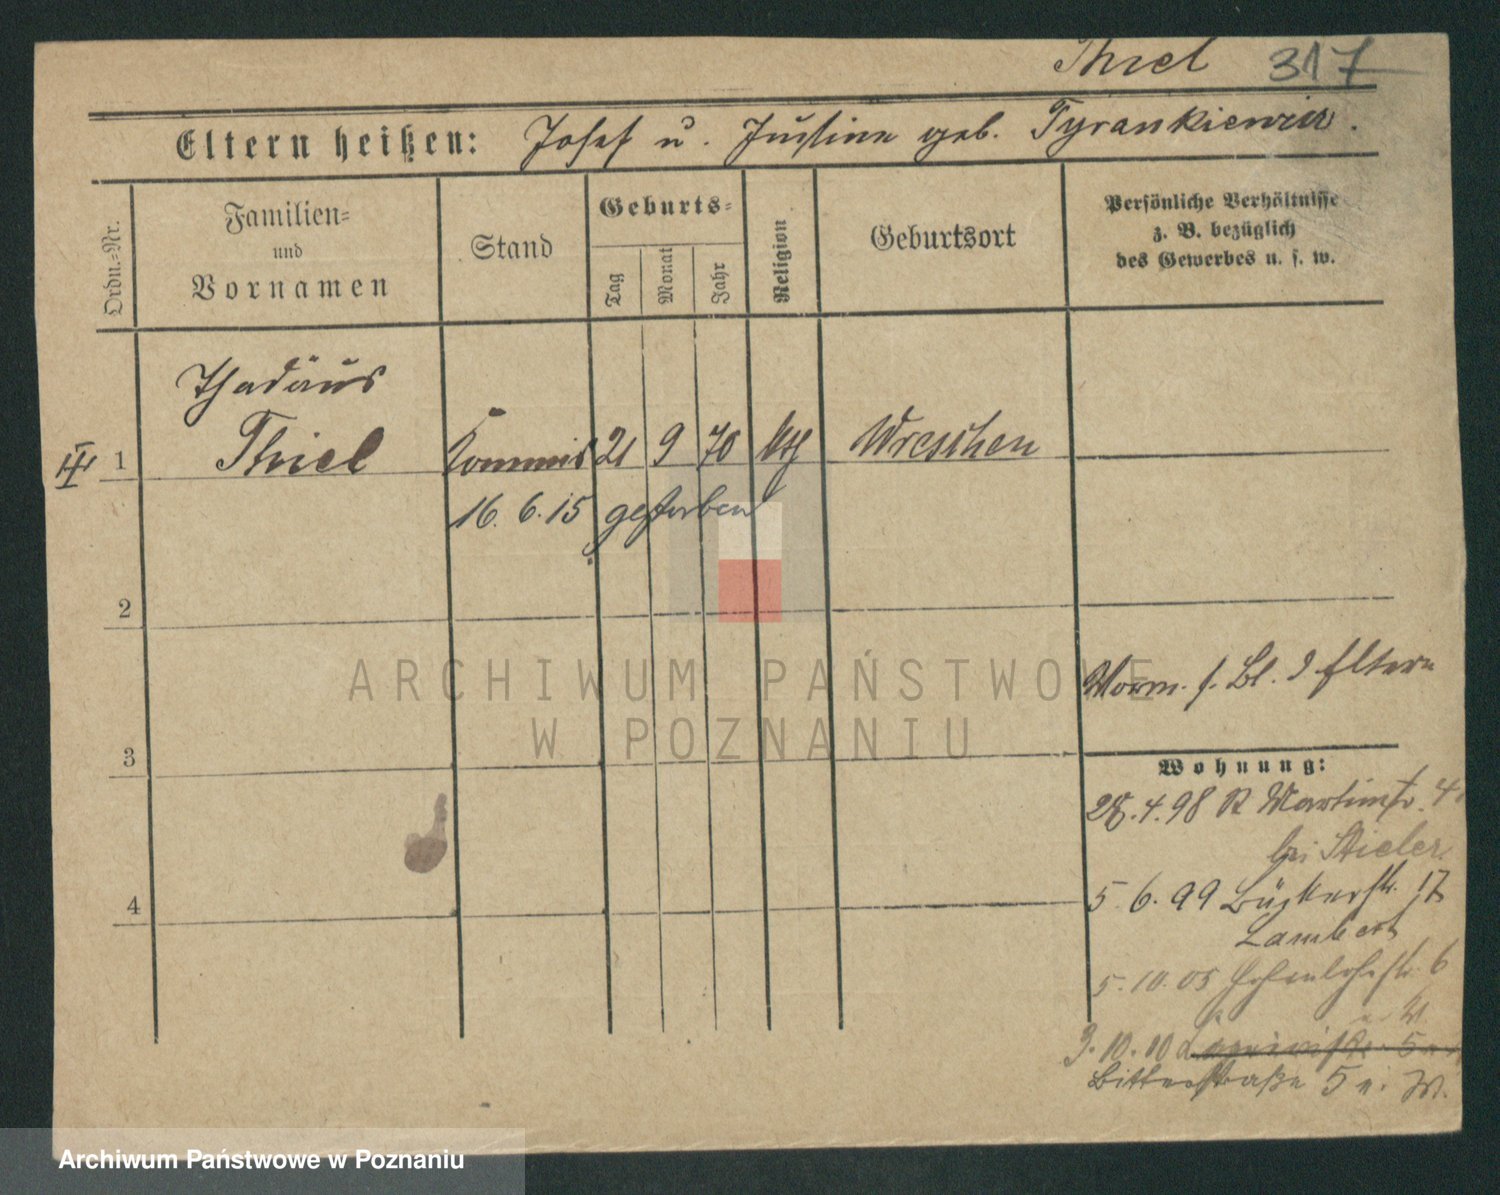 Thiel 317
Eltern heißen: Josef u. Justine geb. Tyrankiewicz.
Ordn.-Nr.
Familien-
und
Vornamen
Stand
Geburts-
Tag
Monat
Jahr
Religion
Geburtsort
Persönliche Verhältnisse
z. B. bezüglich
des Gewerbes u. s. w.
Thadäus
1 Thiel Kommis 21 9 70 kth Wreschen
16. 6. 15 gestorben
2
Vorm. s. Bl. d Eltern
3
Wohnung:
28.4.98 R Martinstr. 4
bei Stieler
4
5 6. 99 Bäckerstr. 17
Lambert
5.10.05 Hohenlohestr. 6
3.10.10
Bitterstraße 5 n. W.
ARCHIWUM PAŃSTWOWE
W POZNANIU
Archiwum Państwowe w Poznaniu